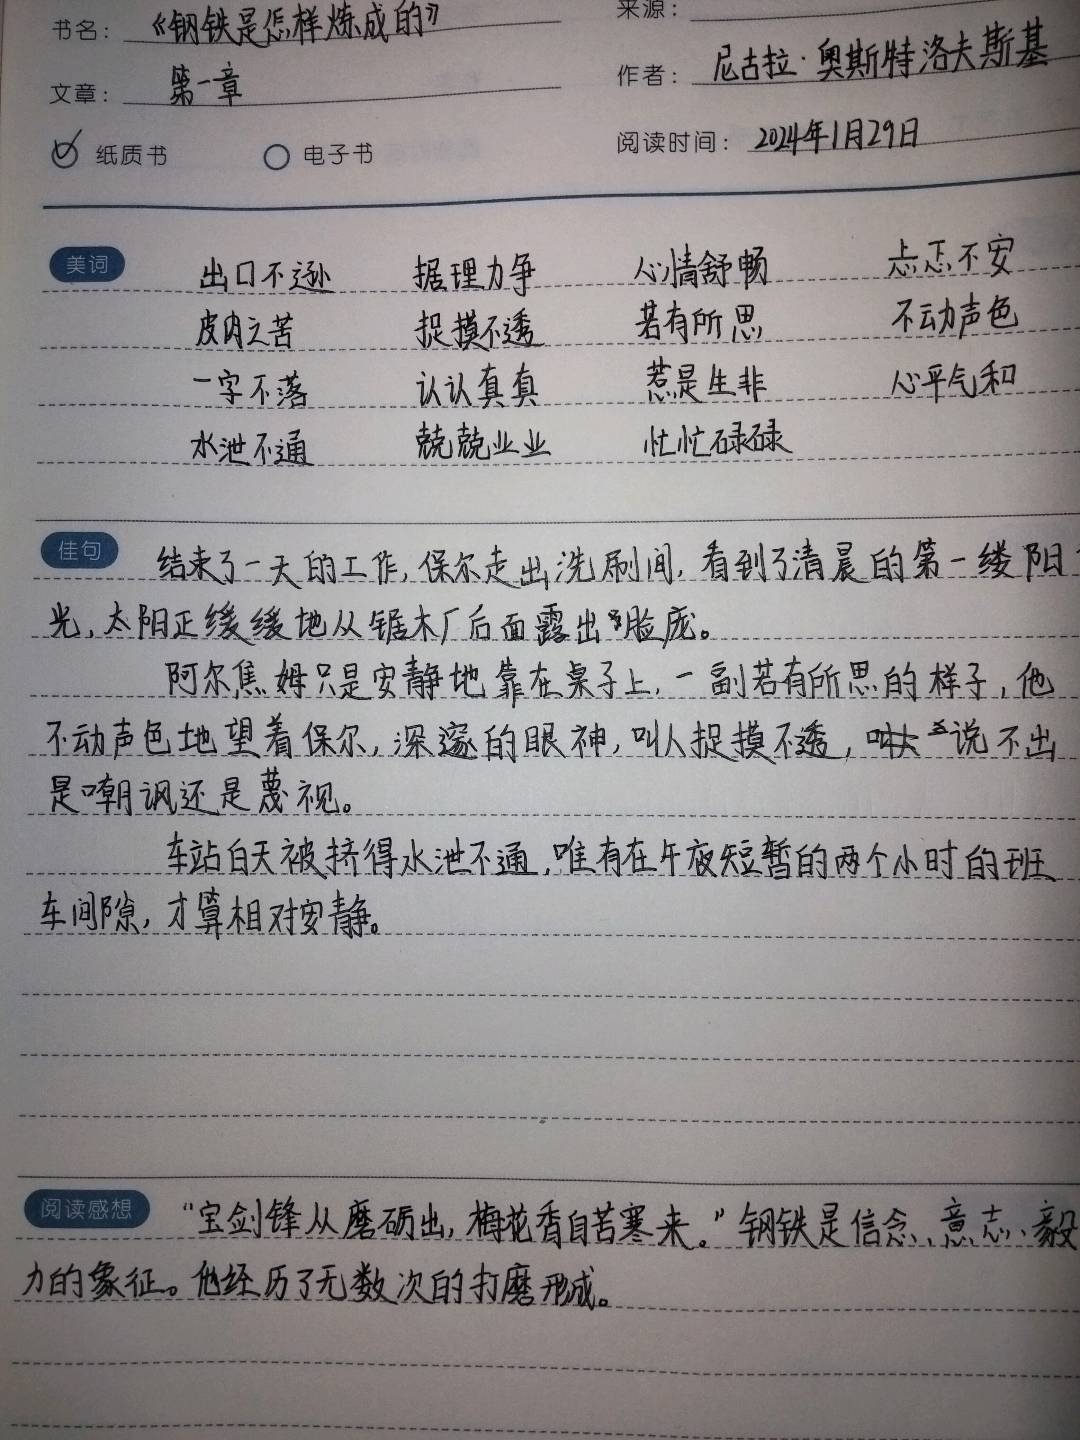 书名：《钢铁是怎样炼成的》 来源：
文章：第一章 作者：尼古拉·奥斯特洛夫斯基
纸质书 电子书 阅读时间：2024年1月29日
美词 出口不逊 据理力争 心情舒畅 忐忑不安
皮肉之苦 捉摸不透 若有所思 不动声色
一字不落 认认真真 惹是生非 心平气和
水泄不通 兢兢业业 忙忙碌碌
佳句 结束了一天的工作,保尔走出洗刷间,看到了清晨的第一缕阳
光,太阳正缓缓地从锯木厂后面露出脸庞。
阿尔焦姆只是安静地靠在桌子上,一副若有所思的样子,他
不动声色地望着保尔,深邃的眼神,叫人捉摸不透,说不出
是嘲讽还是蔑视。
车站白天被挤得水泄不通,唯有在午夜短暂的两个小时的班
车间隙,才算相对安静。
阅读感想 “宝剑锋从磨砺出,梅花香自苦寒来。”钢铁是信念、意志、毅
力的象征。他经历了无数次的打磨形成。